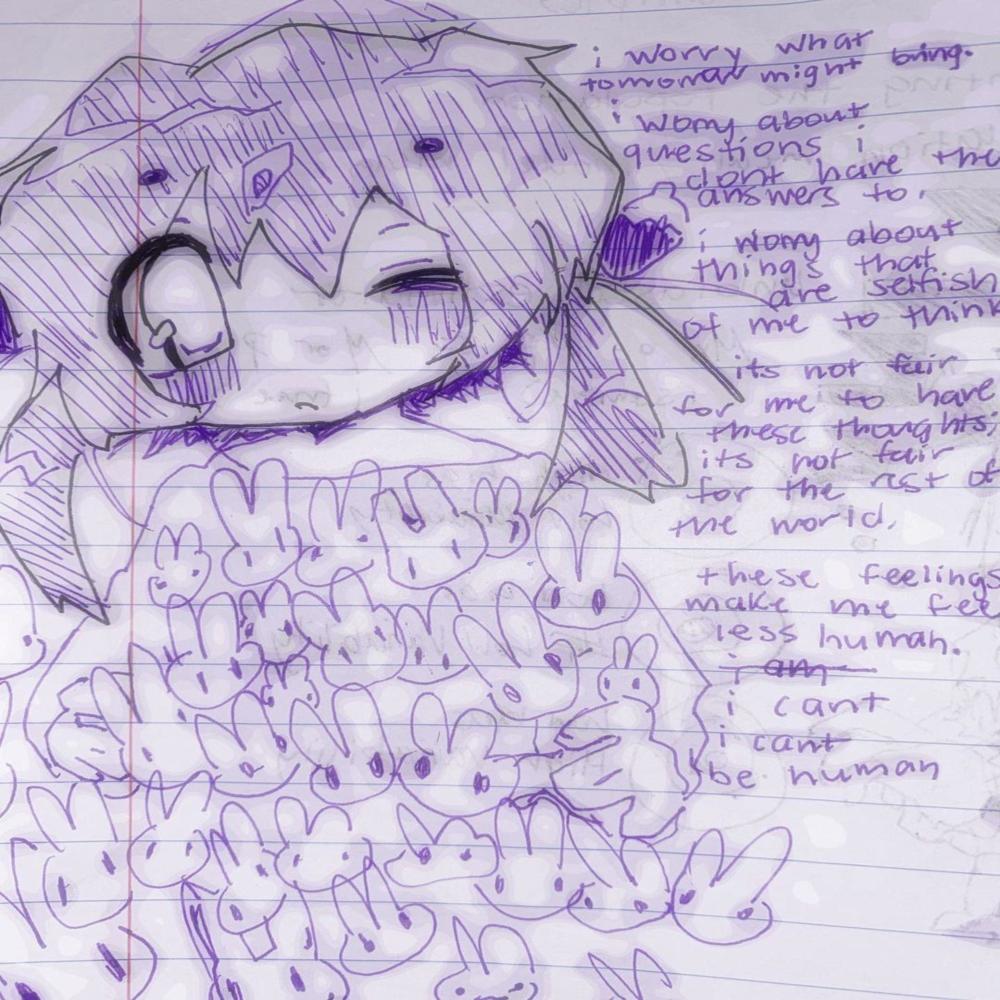 i worry what
tomorrow might bring.
i worry about
questions i
dont have the
answers to.
i worry about
things that
are selfish
of me to think
its not fair
for me to have
these thoughts,
its not fair
for the rest of
the world.
these feelings
make me fee
less human.
i am
i cant
i cant
be human